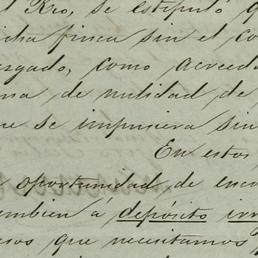 el Xro, se estipuló q
icha finca sin el co
rgado, como acreed
na de nulidad de
ue se impusiera sin
En estos
oportunidad de enco
ambien á depósito irr
esos que necesitamos p